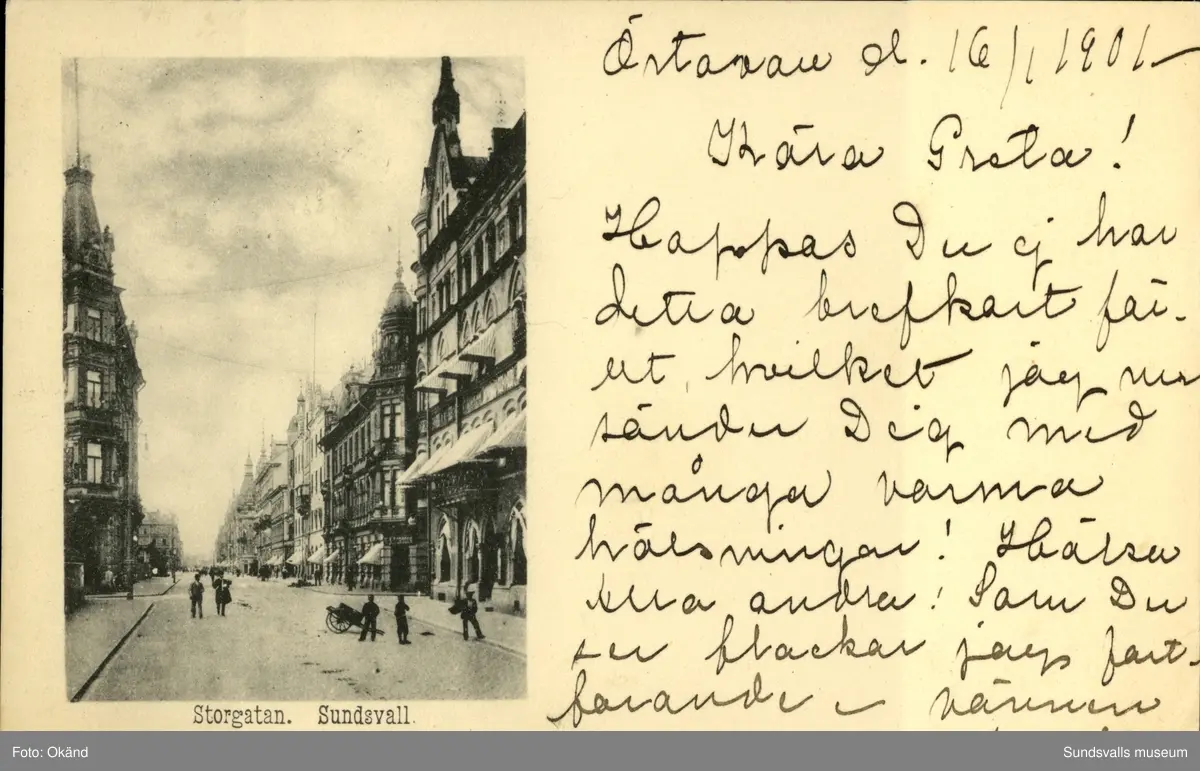 Östanau d. 16/1 1901 –
Kära Greta!
Hoppas Du ej har
detta brefkort för-
ut, hvilket jag nu
sänder Dig med
många varma
hälsningar! Hälsa
alla andra! Som Du
ser flackar jag fort-
farande – vännen
Storgatan. Sundsvall.
Foto: Okänd
Sundsvalls museum